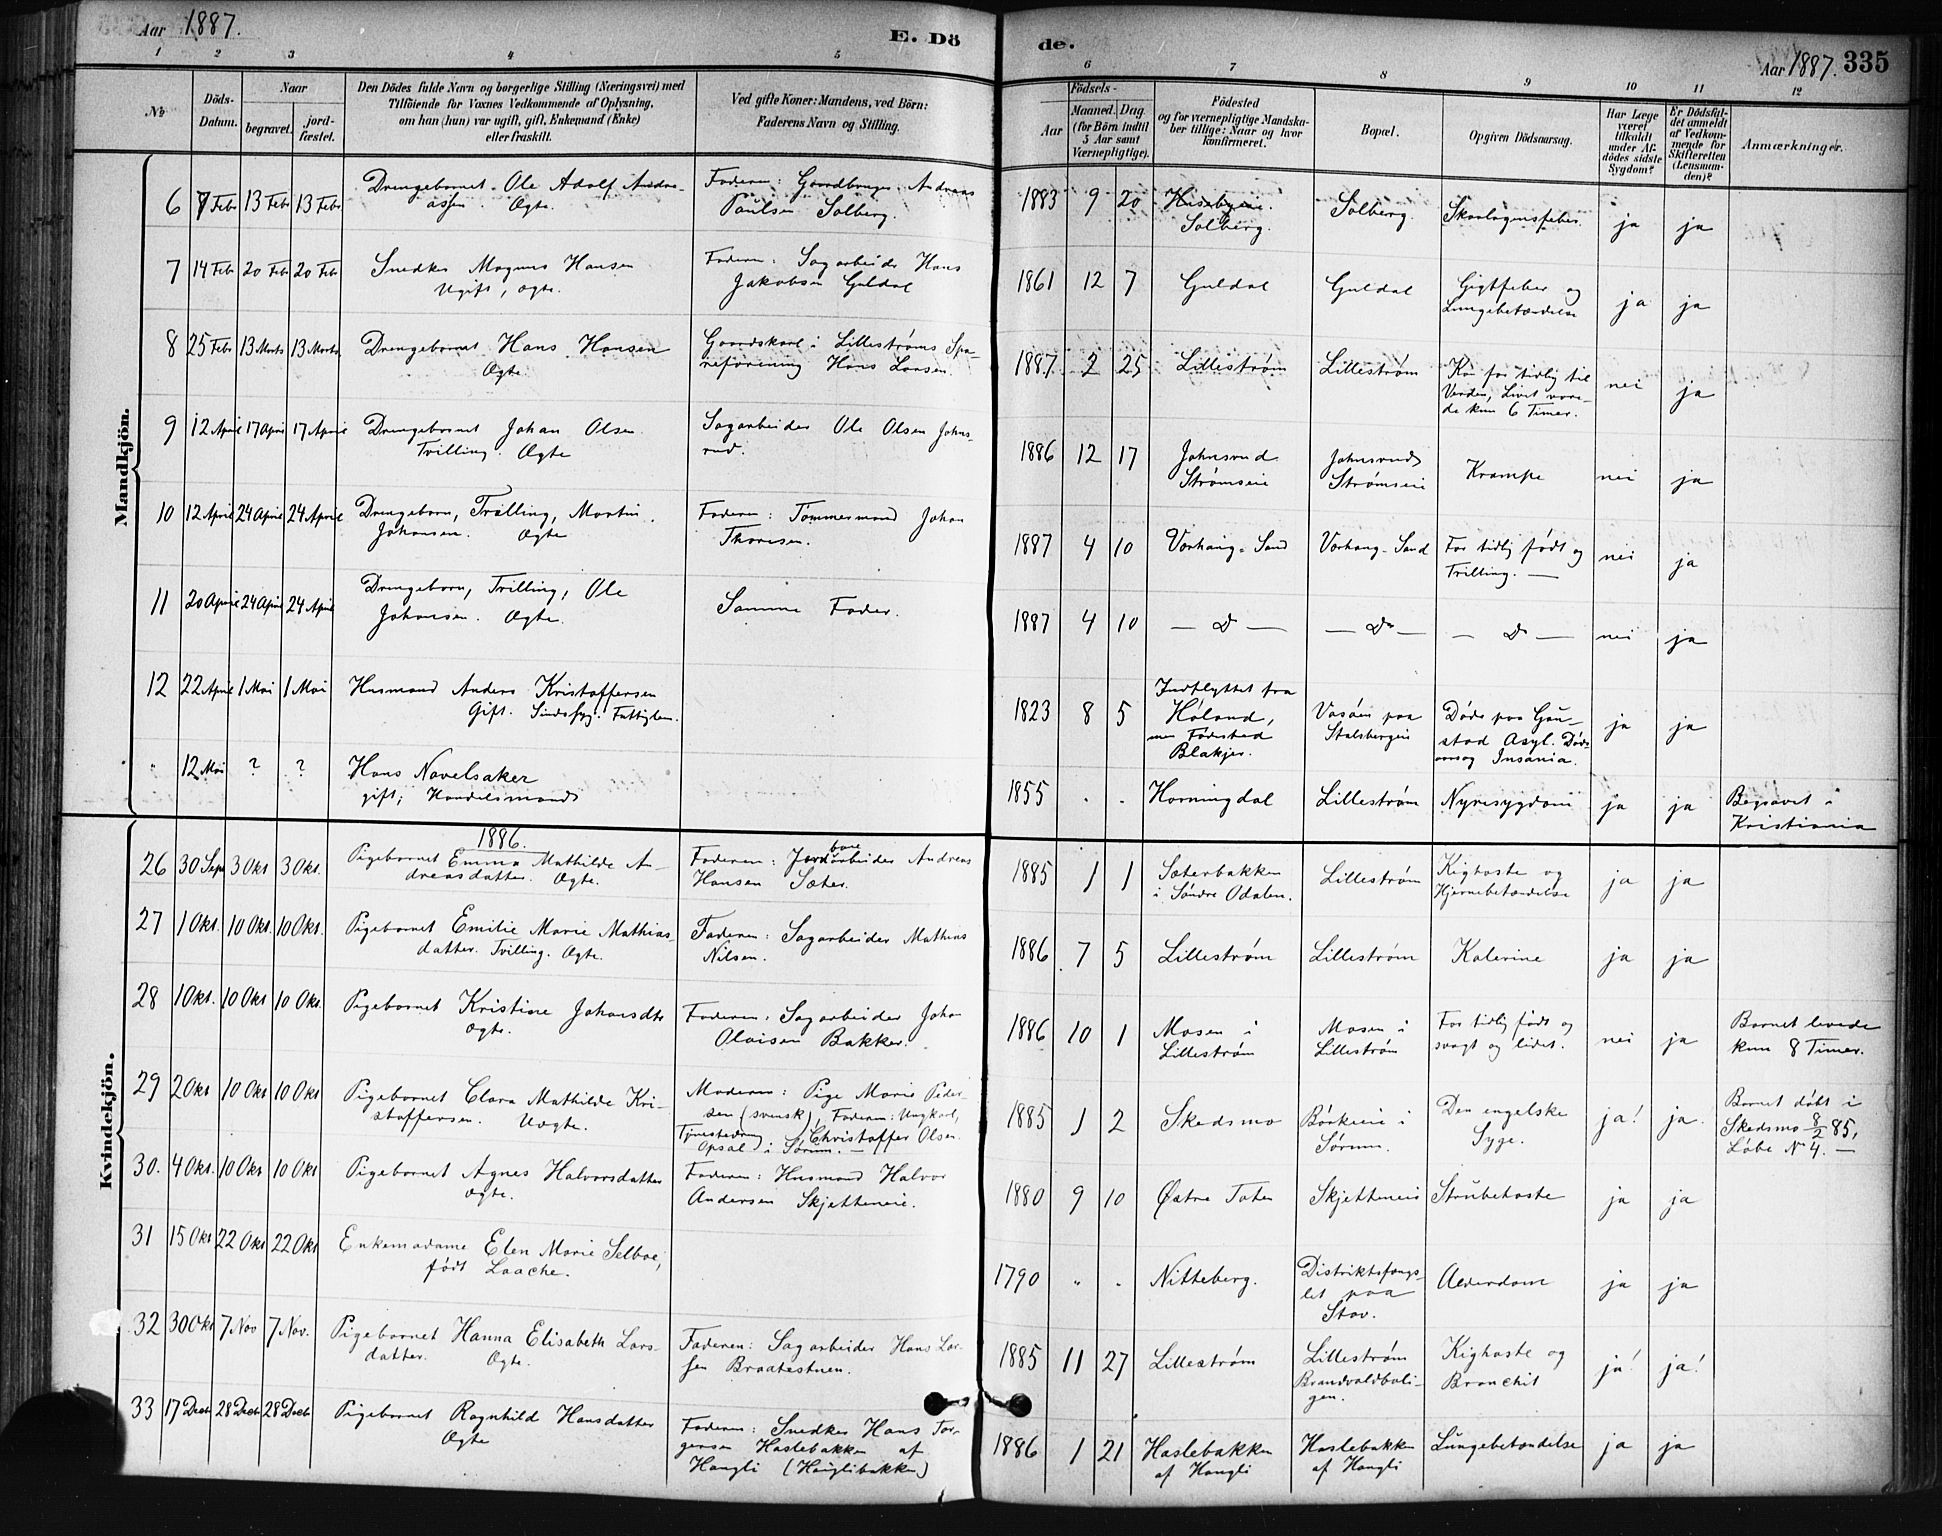 Aar 1887.
E. Dö
de.
Aar 1887. 335
1 2 3 4 5 6 7 8 9 10 11 12
No
Döds-
Datum.
Naar
begravet.
jord-
fæstet.
Den Dödes fulde Navn og borgerlige Stilling (Næringsvei) med
Tilföiende for Voxnes Vedkommende af Oplysning,
om han (hun) var ugift, gift, Enkemand (Enke)
eller fraskilt.
Ved gifte Koner: Mandens, ved Börn:
Faderens Navn og Stilling.
Födsels-
Aar
Maaned. Dag.
(for Börn indtil
5 Aar samt
Værnepligtige).
Födested
og for værnepligtige Mandska-
ber tillige: Naar og hvor
konfirmeret.
Bopæl.
Opgiven Dödsaarsag.
Har Læge
været
tilkaldt
under Af-
dödes sidste
Sygdom?
Er Dödsfal-
det anmeldt
af Vedkom-
mende for
Skifteretten
(Lensman-
den)?
Anmærkninger.
Mandkjön.
6 7 Febr 13 Febr 13 Febr
Drengebarnet Ole Adolf Andre-
assen. Ægte.
Faderen: Gaardbruger Andreas
Paulsen Solberg.
1883 9 20
Solberg.
Solberg.
Skarlagensfeber
ja ja
7 14 Febr 20 Febr 20 Febr
Snedker Magnus Hansen
Ugift, ægte.
Faderen: Sagarbeider Hans
Jakobsen Guldal
1861 12 7
Guldal
Guldal
Gigtfeber og
Lungebetændelse
ja ja
8 25 Febr 13 Marts 13 Marts
Drengebarnet Hans Hansen
Ægte.
Gaardskarl i Lillestrøms Spa-
reforening Hans Larsen.
1887 2 25
Lillestrøm
Lillestrøm
Kom for tidlig til
Verden, Livet vare-
de kun 6 Timer.
nei ja
9 12 April 17 April 17 April
Drengebarnet Johan Olsen
Tvilling. Ægte
Sagarbeider Ole Olsen Johns-
rud.
1886 12 17
Johnsrud
Strømseie
Johnsrud
Strømseie
Krampe
nei ja
10 12 April 24 April 24 April
Drengebarn, Trilling, Martin
Johansen. Ægte
Faderen: Tømmermand Johan
Thoresen.
1887 4 10
Vorhaug-Sand
Vorhaug-Sand
For tidlig født og
Trilling. —
nei ja
11 20 April 24 April 24 April
Drengebarn, Trilling, Ole
Johansen. Ægte.
Samme Fader.
1887 4 10
— Do —
— Do —
— Do —
nei ja
12 22 April 1 Mai 1 Mai
Husmand Anders Kristoffersen
Gift. Sindssyg. Fattiglem.
1823 8 5
Indflyttet fra
Høland,
men Fødested
Blakjer.
Vasøen paa
Stalsbergeie
Døde paa Gau-
stad Asyl. Døds-
aarsag Insania.
ja ja
" 12 Mai ? ?
Hans Navelsaker
gift; Handelsmand
1855 " "
Horningdal
Lillestrøm
Nyresygdom
ja ja
Begravet i
Kristiania
Kvindekjön.
1886.
26 30 Sept 3 Okt 3 Okt.
Pigebarnet Emma Mathilde An-
dreasdatter. Ægte.
Faderen: Jernbanearbeider Andreas
Hansen Sæter.
1885 1 1
Sæterbakken
i Søndre Odalen.
Lillestrøm
Kighoste og
Hjernebetændelse
ja ja
27 1 Okt. 10 Okt. 10 Okt.
Pigebarnet Emilie Marie Mathias-
datter. Tvilling. Ægte.
Faderen: Sagarbeider Mathias
Nilsen.
1886 7 5
Lillestrøm
Lillestrøm
Kolerine
ja ja
28 1 Okt. 10 Okt 10 Okt.
Pigebarnet Kristine Johansdtr
Ægte.
Faderen: Sagarbeider Johan
Olaisen Bakken.
1886 10 1
Mosen i
Lillestrøm
Mosen i
Lillestrøm
For tidlig født og
svagt og lidet.
nei ja
Barnet levede
kun 8 Timer.
29 2 Okt 10 Okt 10 Okt
Pigebarnet Clara Mathilde Kri-
stoffersen. Uægte.
Moderen: Pige Marie Peder-
sen (svensk). Faderen: Ungkarl,
Tjenestedreng Christoffer Olsen
Opsal i Sørum. —
1885 1 2
Skedsmo
Børkeeie i
Sørum.
Den engelske
Syge.
ja! ja.
Barnet døbt i
Skedsmo 8/2 85,
Løbe N 4. —
30. 4 Okt. 10 Okt 10 Okt
Pigebarnet Agnes Halvorsdatter
Ægte.
Faderen: Husmand Halvor
Andersen Skjetteneie.
1880 9 10
Østre Toten
Skjetteneie
Strubehoste
ja ja
31 15 Okt 22 Okt 22 Okt
Enkemadame Elen Marie Selboe,
født Laache.
1790 " "
Nitteberg.
Distriktsfængs-
let paa
Stav.
Alderdom
ja ja
32 30 Okt 7 Nov 7 Nov.
Pigebarnet Hanna Elisabeth Lars-
datter. Ægte.
Faderen: Sagarbeider Hans Lar-
sen Braatestuen.
1885 11 27
Lillestrøm
Lillestrøm
Brandvoldboli-
gen.
Kighoste og
Bronchit
ja! ja!
33 17 Decbr 28 Decbr 28 Decbr
Pigebarnet Ragnhild Hansdatter
Ægte
Faderen: Snedker Hans Tor-
gersen Haslebakken af
Haugli (Hauglibakken)
1886 1 21
Haslebakken
af Haugli
Haslebakken
af Haugli
Lungebetændelse
ja ja